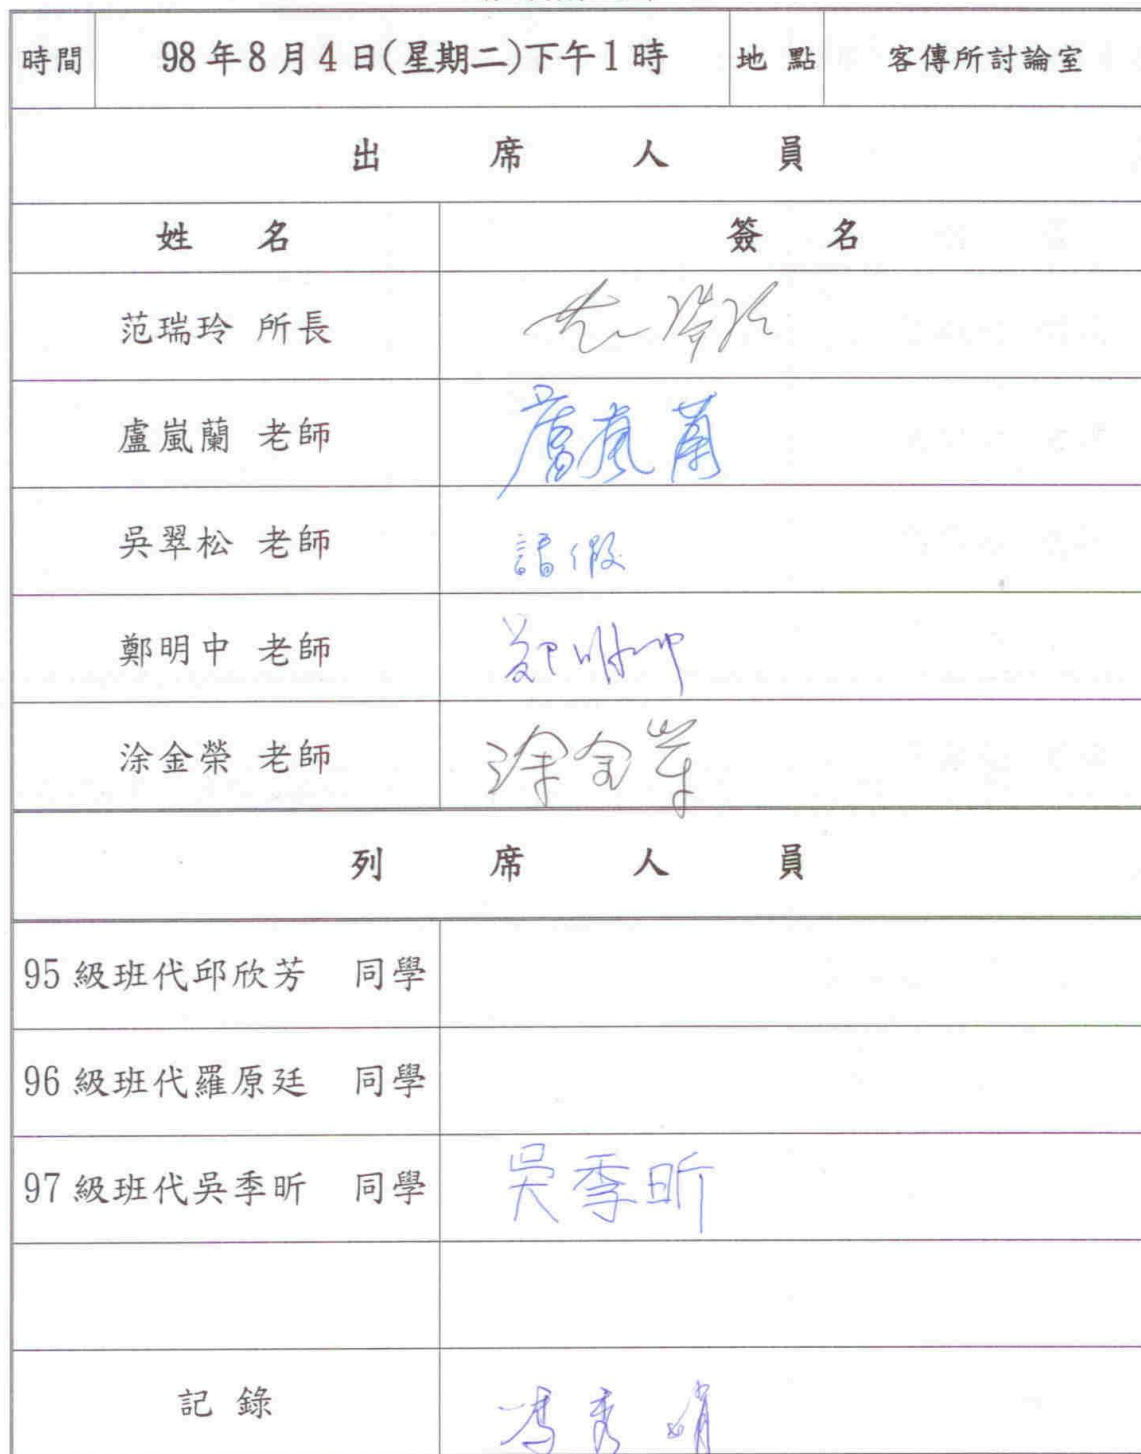 時間 98年8月4日(星期二)下午1時 地點 客傳所討論室
出席人員
姓名 簽名
范瑞玲 所長 范瑞玲
盧嵐蘭 老師 盧嵐蘭
吳翠松 老師 請假
鄭明中 老師 鄭明中
涂金榮 老師 涂金榮
列席人員
95級班代邱欣芳 同學
96級班代羅原廷 同學
97級班代吳季昕 同學 吳季昕
記錄 馮秀娟